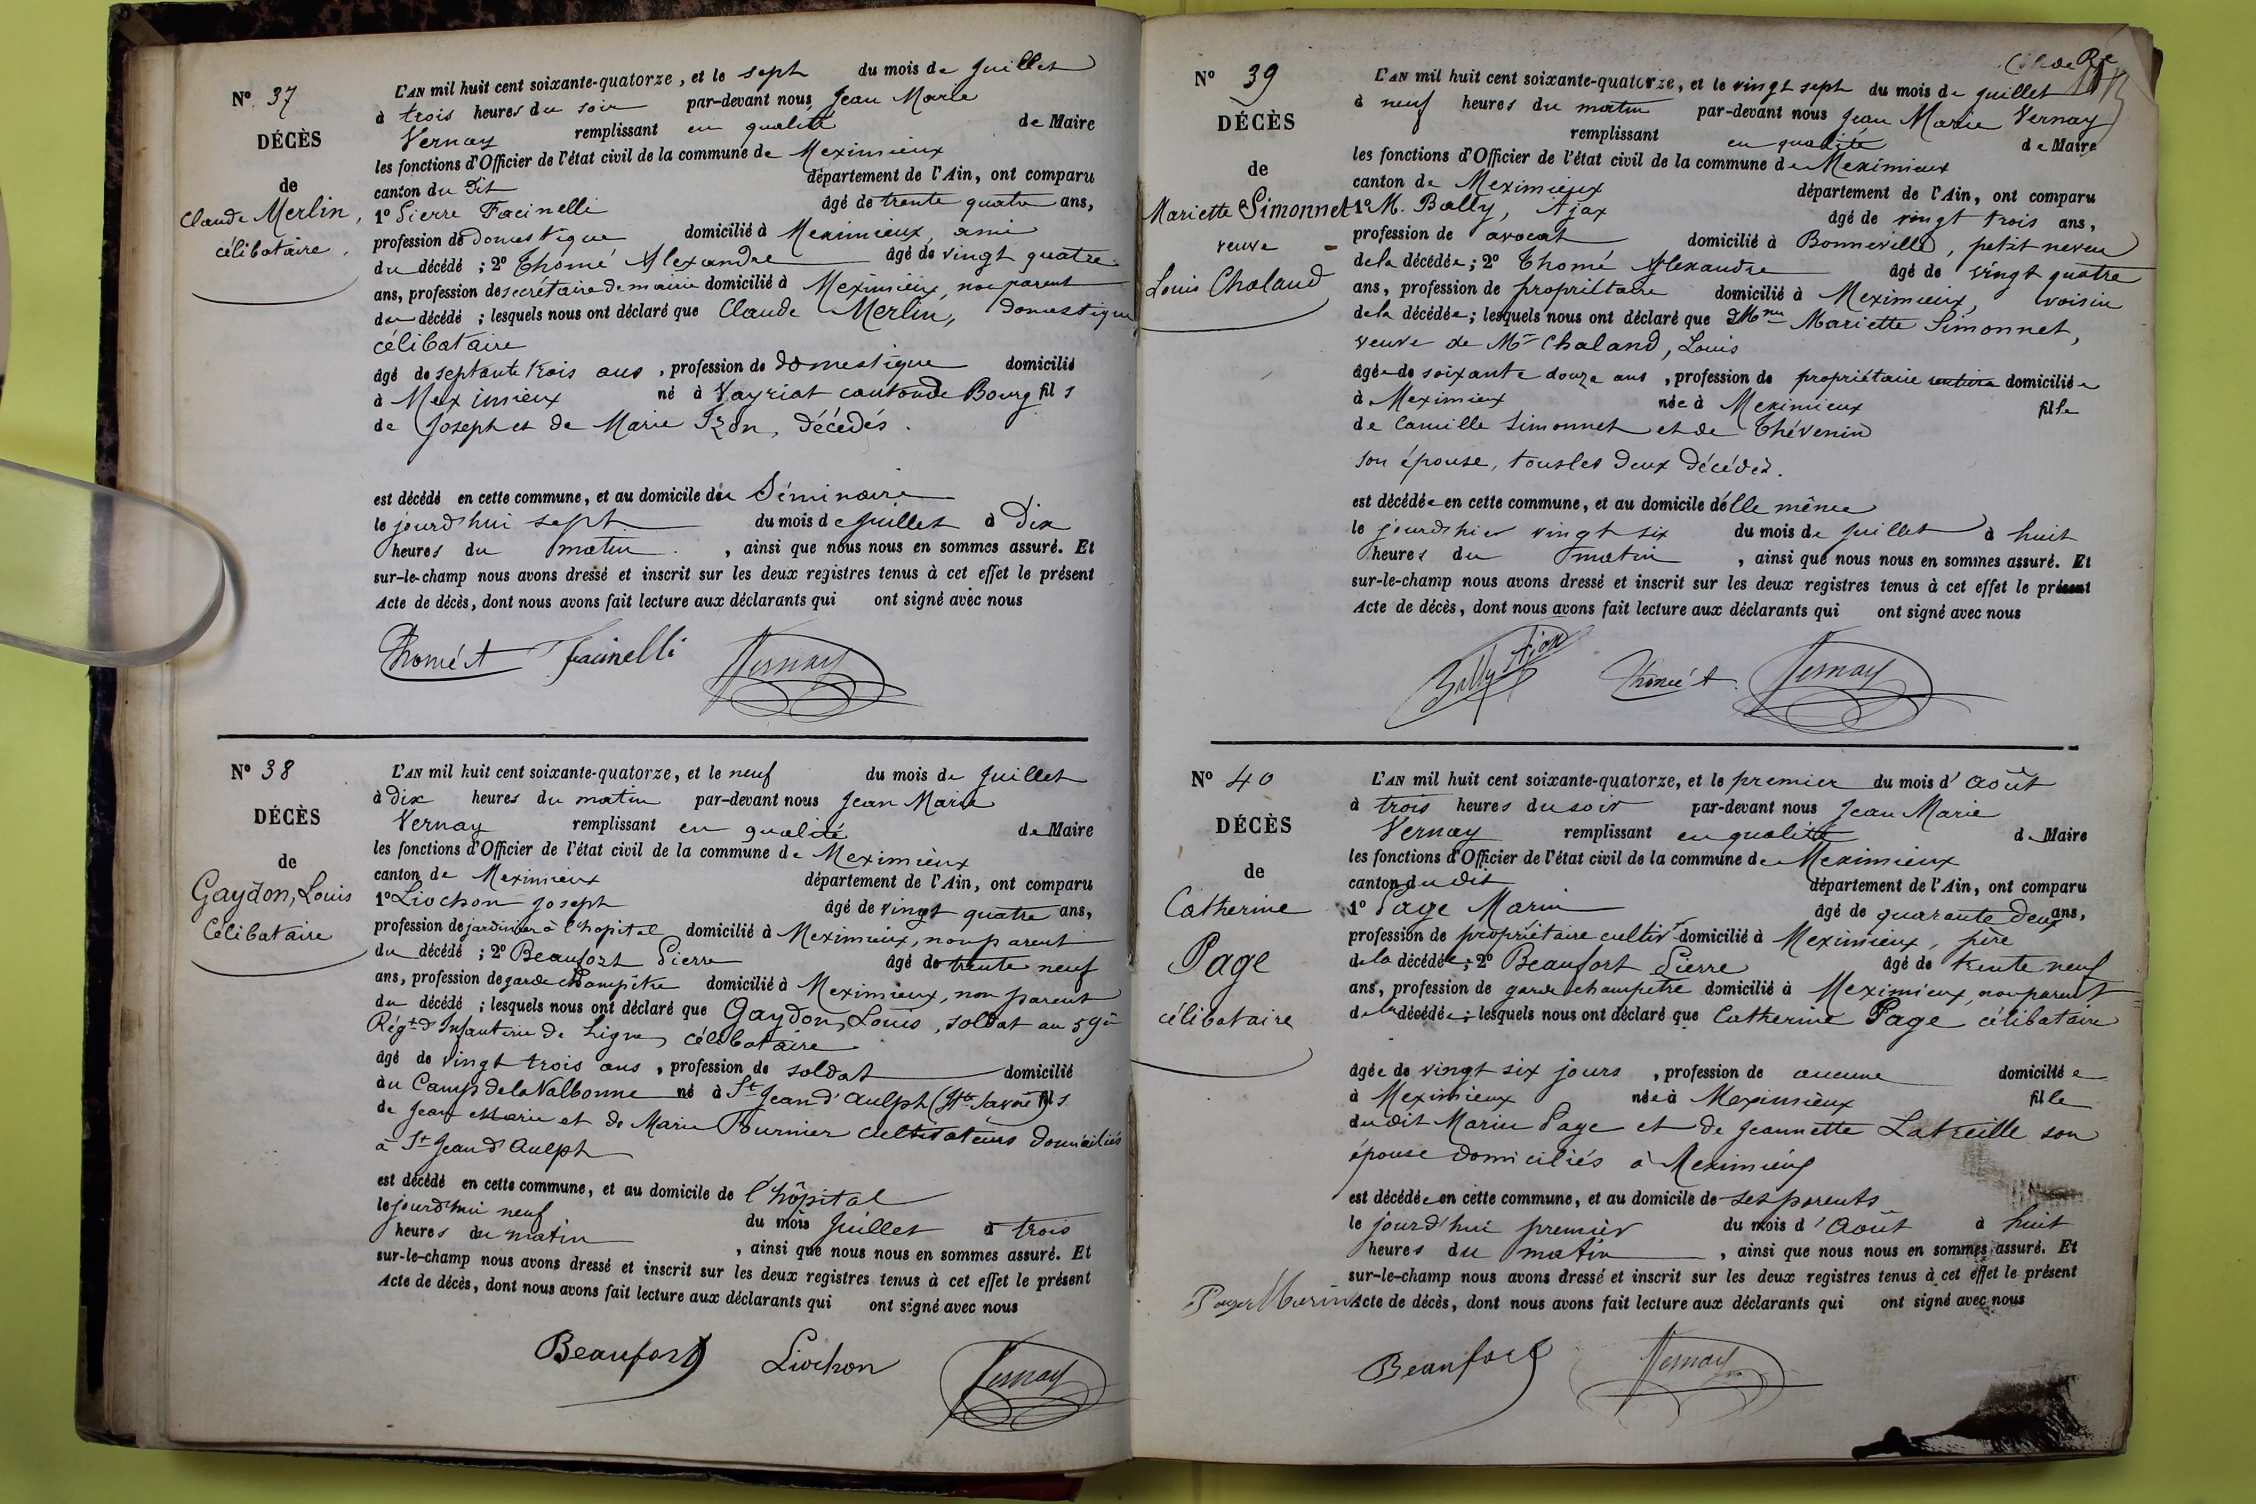 N° 37
DÉCÈS
de
Claude Merlin,
célibataire.
L'AN mil huit cent soixante-quatorze, et le sept du mois de juillet
à trois heures du soir par-devant nous, Jean Marie
Vernay remplissant en qualité de Maire
les fonctions d'Officier de l'état civil de la commune de Meximieux
canton du dit département de l'Ain, ont comparu
1° Pierre Facinelli âgé de trente quatre ans,
profession de domestique domicilié à Meximieux, ami
du décédé ; 2° Thomé Alexandre âgé de vingt quatre
ans, profession de secrétaire de mairie domicilié à Meximieux, non parent
du décédé ; lesquels nous ont déclaré que Claude Merlin, domestique
célibataire
âgé de septante trois ans, profession de domestique domicilié
à Meximieux né à Vayriat canton de Bourg fils
de Joseph et de Marie Izon, décédés.
est décédé en cette commune, et au domicile du Séminaire
le jourd'hui sept du mois de juillet à dix
heures du matin, ainsi que nous nous en sommes assuré. Et
sur-le-champ nous avons dressé et inscrit sur les deux registres tenus à cet effet le présent
Acte de décès, dont nous avons fait lecture aux déclarants qui ont signé avec nous
Thomé A Facinelli Vernay
N° 38
DÉCÈS
de
Gaydon, Louis
Célibataire
L'AN mil huit cent soixante-quatorze, et le neuf du mois de juillet
à dix heures du matin par-devant nous Jean Marie
Vernay remplissant en qualité de Maire
les fonctions d'Officier de l'état civil de la commune de Meximieux
canton de Meximieux département de l'Ain, ont comparu
1° Liochon Joseph âgé de vingt quatre ans,
profession de jardinier à l'hopital domicilié à Meximieux, non parent
du décédé ; 2° Beaufort Pierre âgé de trente neuf
ans, profession de garde champêtre domicilié à Meximieux, non parent
du décédé ; lesquels nous ont déclaré que Gaydon, Louis, soldat au 59e
Régt d'Infanterie de Ligne, célibataire
âgé de vingt trois ans, profession de soldat domicilié
au Camp de la Valbonne né à St Jean d'Aulph (Hte Savoie) fils
de Jean Marie et de Marie Fournier cultivateurs domiciliés
à St Jean d'Aulph
est décédé en cette commune, et au domicile de l'hôpital
le jourd'hui neuf du mois juillet à trois
heures du matin, ainsi que nous nous en sommes assuré. Et
sur-le-champ nous avons dressé et inscrit sur les deux registres tenus à cet effet le présent
Acte de décès, dont nous avons fait lecture aux déclarants qui ont signé avec nous
Beaufort Liochon Vernay
N° 39
DÉCÈS
de
Mariette Simonnet
veuve
Louis Chaland
L'AN mil huit cent soixante-quatorze, et le vingt sept du mois de juillet
à neuf heures du matin par-devant nous Jean Marie Vernay
remplissant en qualité de Maire
les fonctions d'Officier de l'état civil de la commune de Meximieux
canton de Meximieux département de l'Ain, ont comparu
1° M. Bally, Ajax âgé de vingt trois ans,
profession de avocat domicilié à Bonneville, petit neveu
de la décédée ; 2° Thomé Alexandre âgé de vingt quatre
ans, profession de propriétaire domicilié à Meximieux, voisin
de la décédée ; lesquels nous ont déclaré que Mme Mariette Simonnet,
veuve de Mr Chaland, Louis
âgée de soixante douze ans, profession de propriétaire rentière domiciliée
à Meximieux née à Meximieux fille
de Camille Simonnet et de Thévenin
son épouse, tous les deux décédés.
est décédée en cette commune, et au domicile d'elle même
le jourd'hier vingt six du mois de juillet à huit
heures du matin, ainsi que nous nous en sommes assuré. Et
sur-le-champ nous avons dressé et inscrit sur les deux registres tenus à cet effet le présent
Acte de décès, dont nous avons fait lecture aux déclarants qui ont signé avec nous
Bally Ajax Thomé A. Vernay
N° 40
DÉCÈS
de
Catherine
Page
célibataire
L'AN mil huit cent soixante-quatorze, et le premier du mois d'août
à trois heures du soir par-devant nous Jean Marie
Vernay remplissant en qualité de Maire
les fonctions d'Officier de l'état civil de la commune de Meximieux
canton du dit département de l'Ain, ont comparu
1° Page Marin âgé de quarante deux ans,
profession de propriétaire cultivr domicilié à Meximieux, père
de la décédée ; 2° Beaufort Pierre âgé de trente neuf
ans, profession de garde champêtre domicilié à Meximieux, non parent
de la décédée ; lesquels nous ont déclaré que Catherine Page célibataire
âgée de vingt six jours, profession de aucune domiciliée
à Meximieux née à Meximieux fille
du dit Marin Page et de Jeannette Latreille son
épouse domiciliés à Meximieux
est décédée en cette commune, et au domicile de ses parents
le jourd'hui premier du mois d'Août à huit
heures du matin, ainsi que nous nous en sommes assuré. Et
sur-le-champ nous avons dressé et inscrit sur les deux registres tenus à cet effet le présent
Page Marin Acte de décès, dont nous avons fait lecture aux déclarants qui ont signé avec nous
Beaufort Vernay